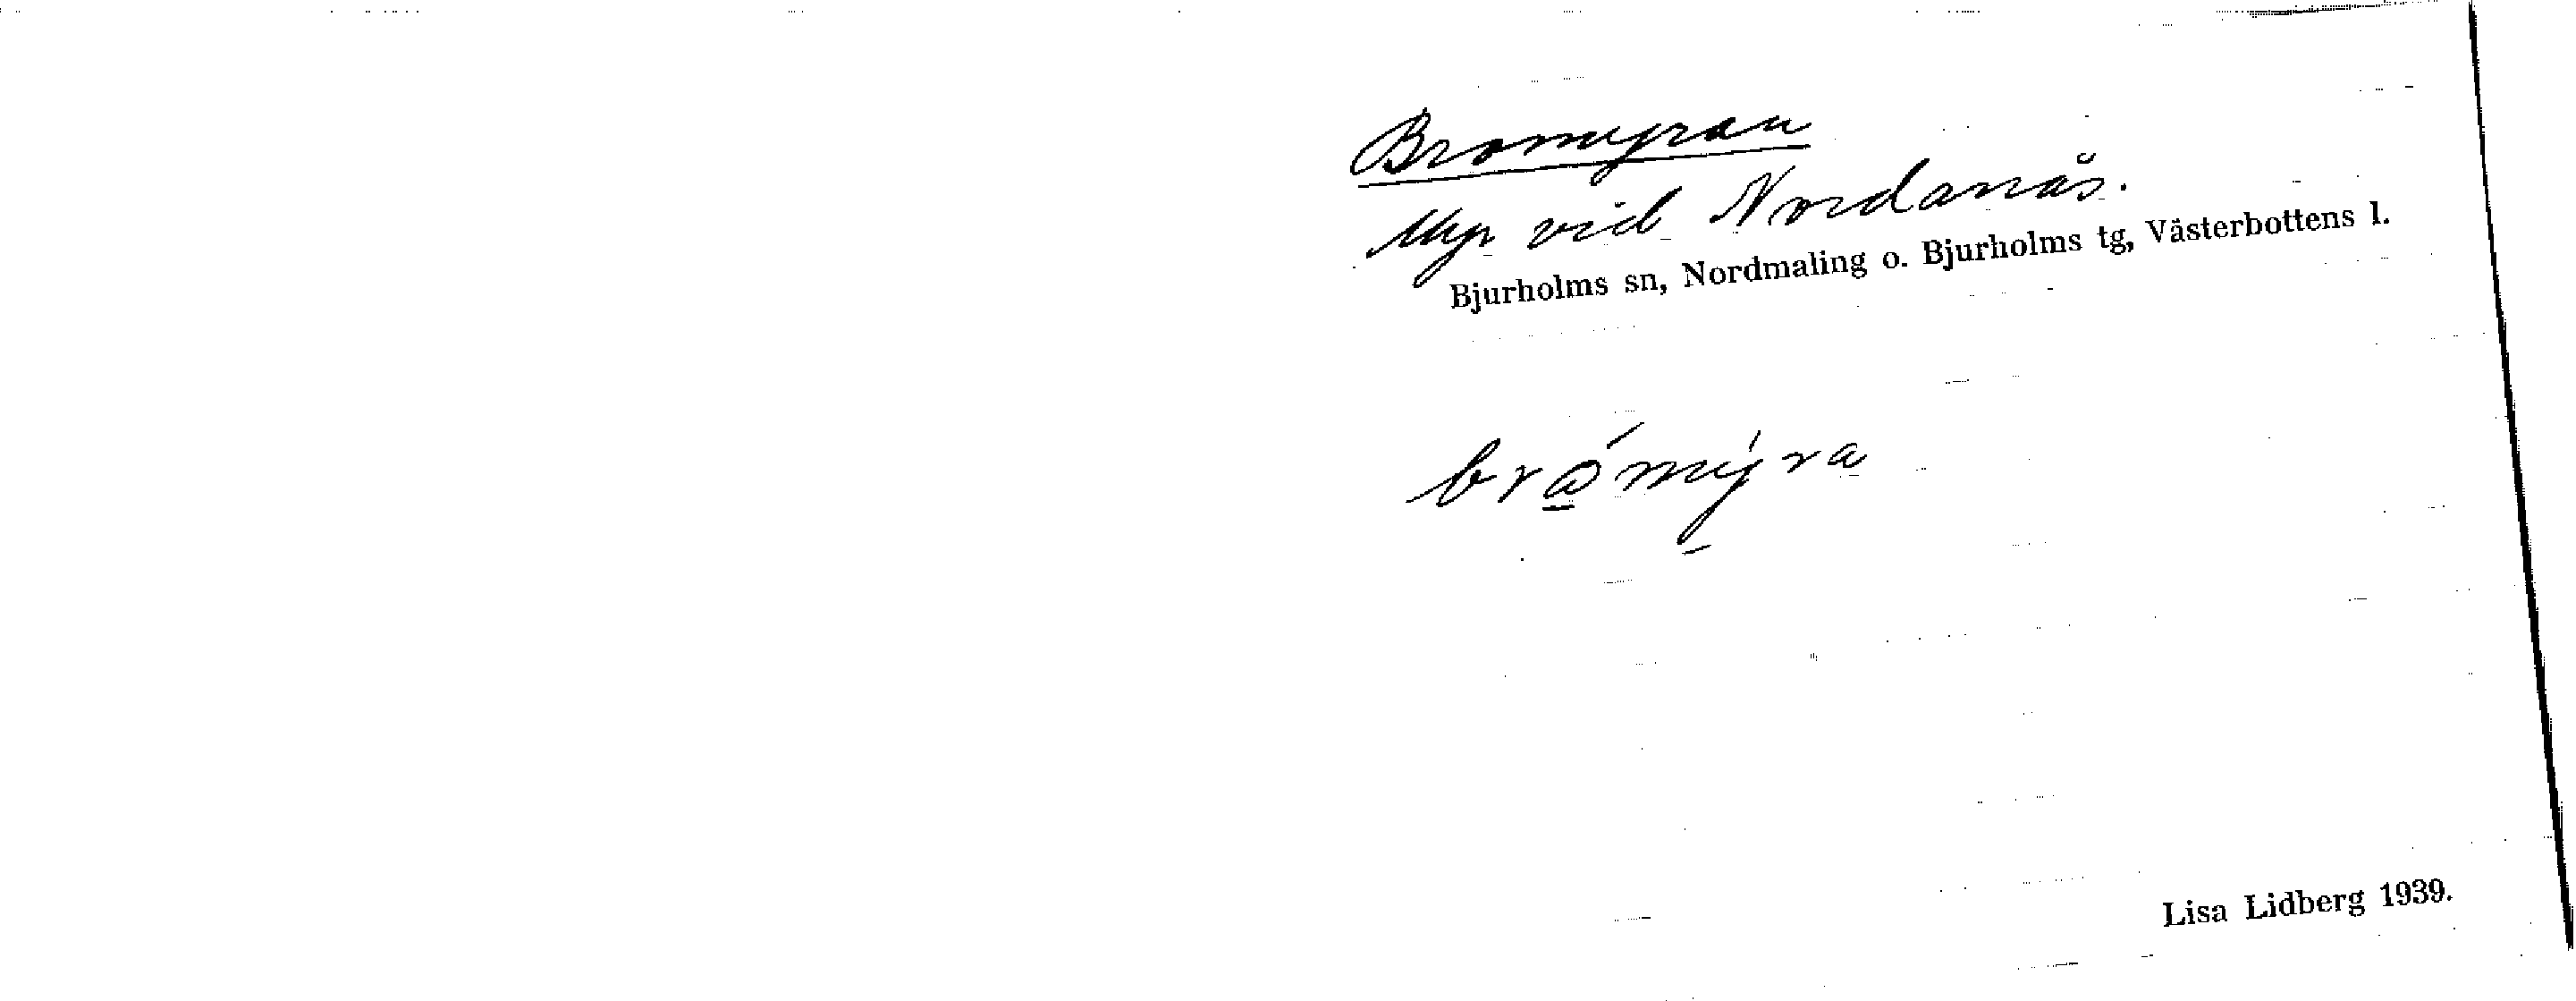 Bromyran
Myr vid Nordanås.
Bjurholms sn, Nordmaling o. Bjurholms tg, Västerbottens l.
brómy̱ra
Lisa Lidberg 1939.